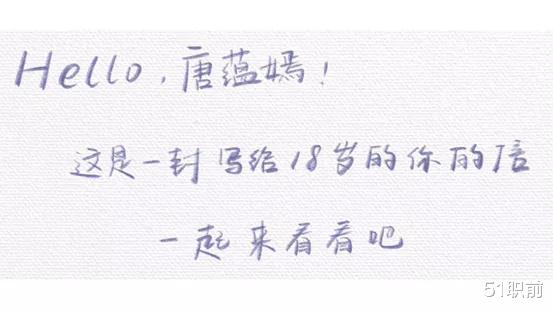 Hello，唐蕴嫣！
这是一封写给18岁的你的信
一起来看看吧
51职前